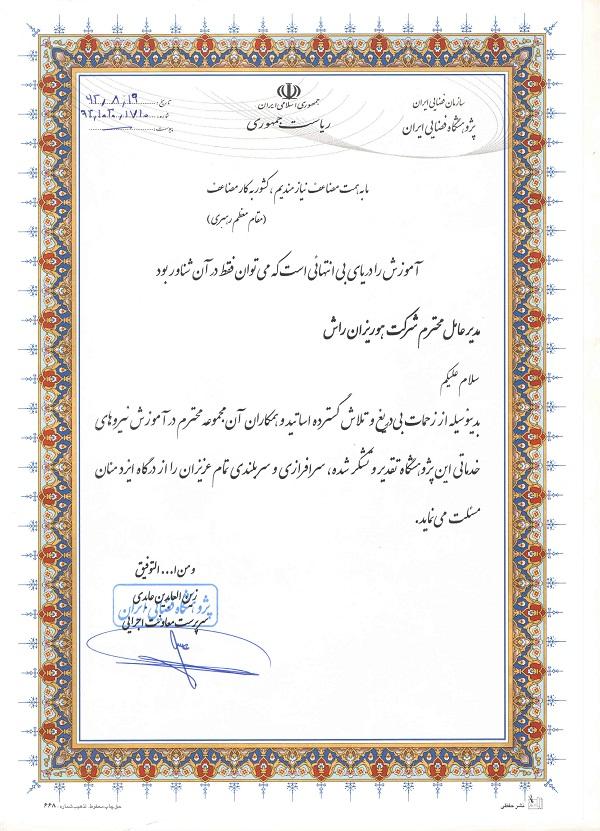 سازمان فضایی ایران
پژوهشگاه فضایی ایران
جمهوری اسلامی ایران
ریاست جمهوری
تاریخ: ۹۲,۸,۱۹
شماره: ۹۲,۱۰۲۰,۱۷۱۰
پیوست:
ما به همت مضاعف نیازمندیم، کشور به کار مضاعف
(مقام معظم رهبری)
آموزش را دریای بی انتهائی است که می توان فقط در آن شناور بود
مدیرعامل محترم شرکت هوریزان راش
سلام علیکم
بدینوسیله از زحمات بی دریغ و تلاش گسترده اساتید و همکاران آن مجموعه محترم در آموزش نیروهای
خدماتی این پژوهشگاه تقدیر و تشکر شده، سرافرازی و سربلندی تمام عزیزان را از درگاه ایزد منان
مسئلت می نماید.
و من ا... التوفیق
زین العابدین عابدی
پژوهشگاه فضایی ایران
سرپرست معاونت اجرایی
نشر حافظی
حق چاپ محفوظ. تذهیب شماره: ۶۶۸